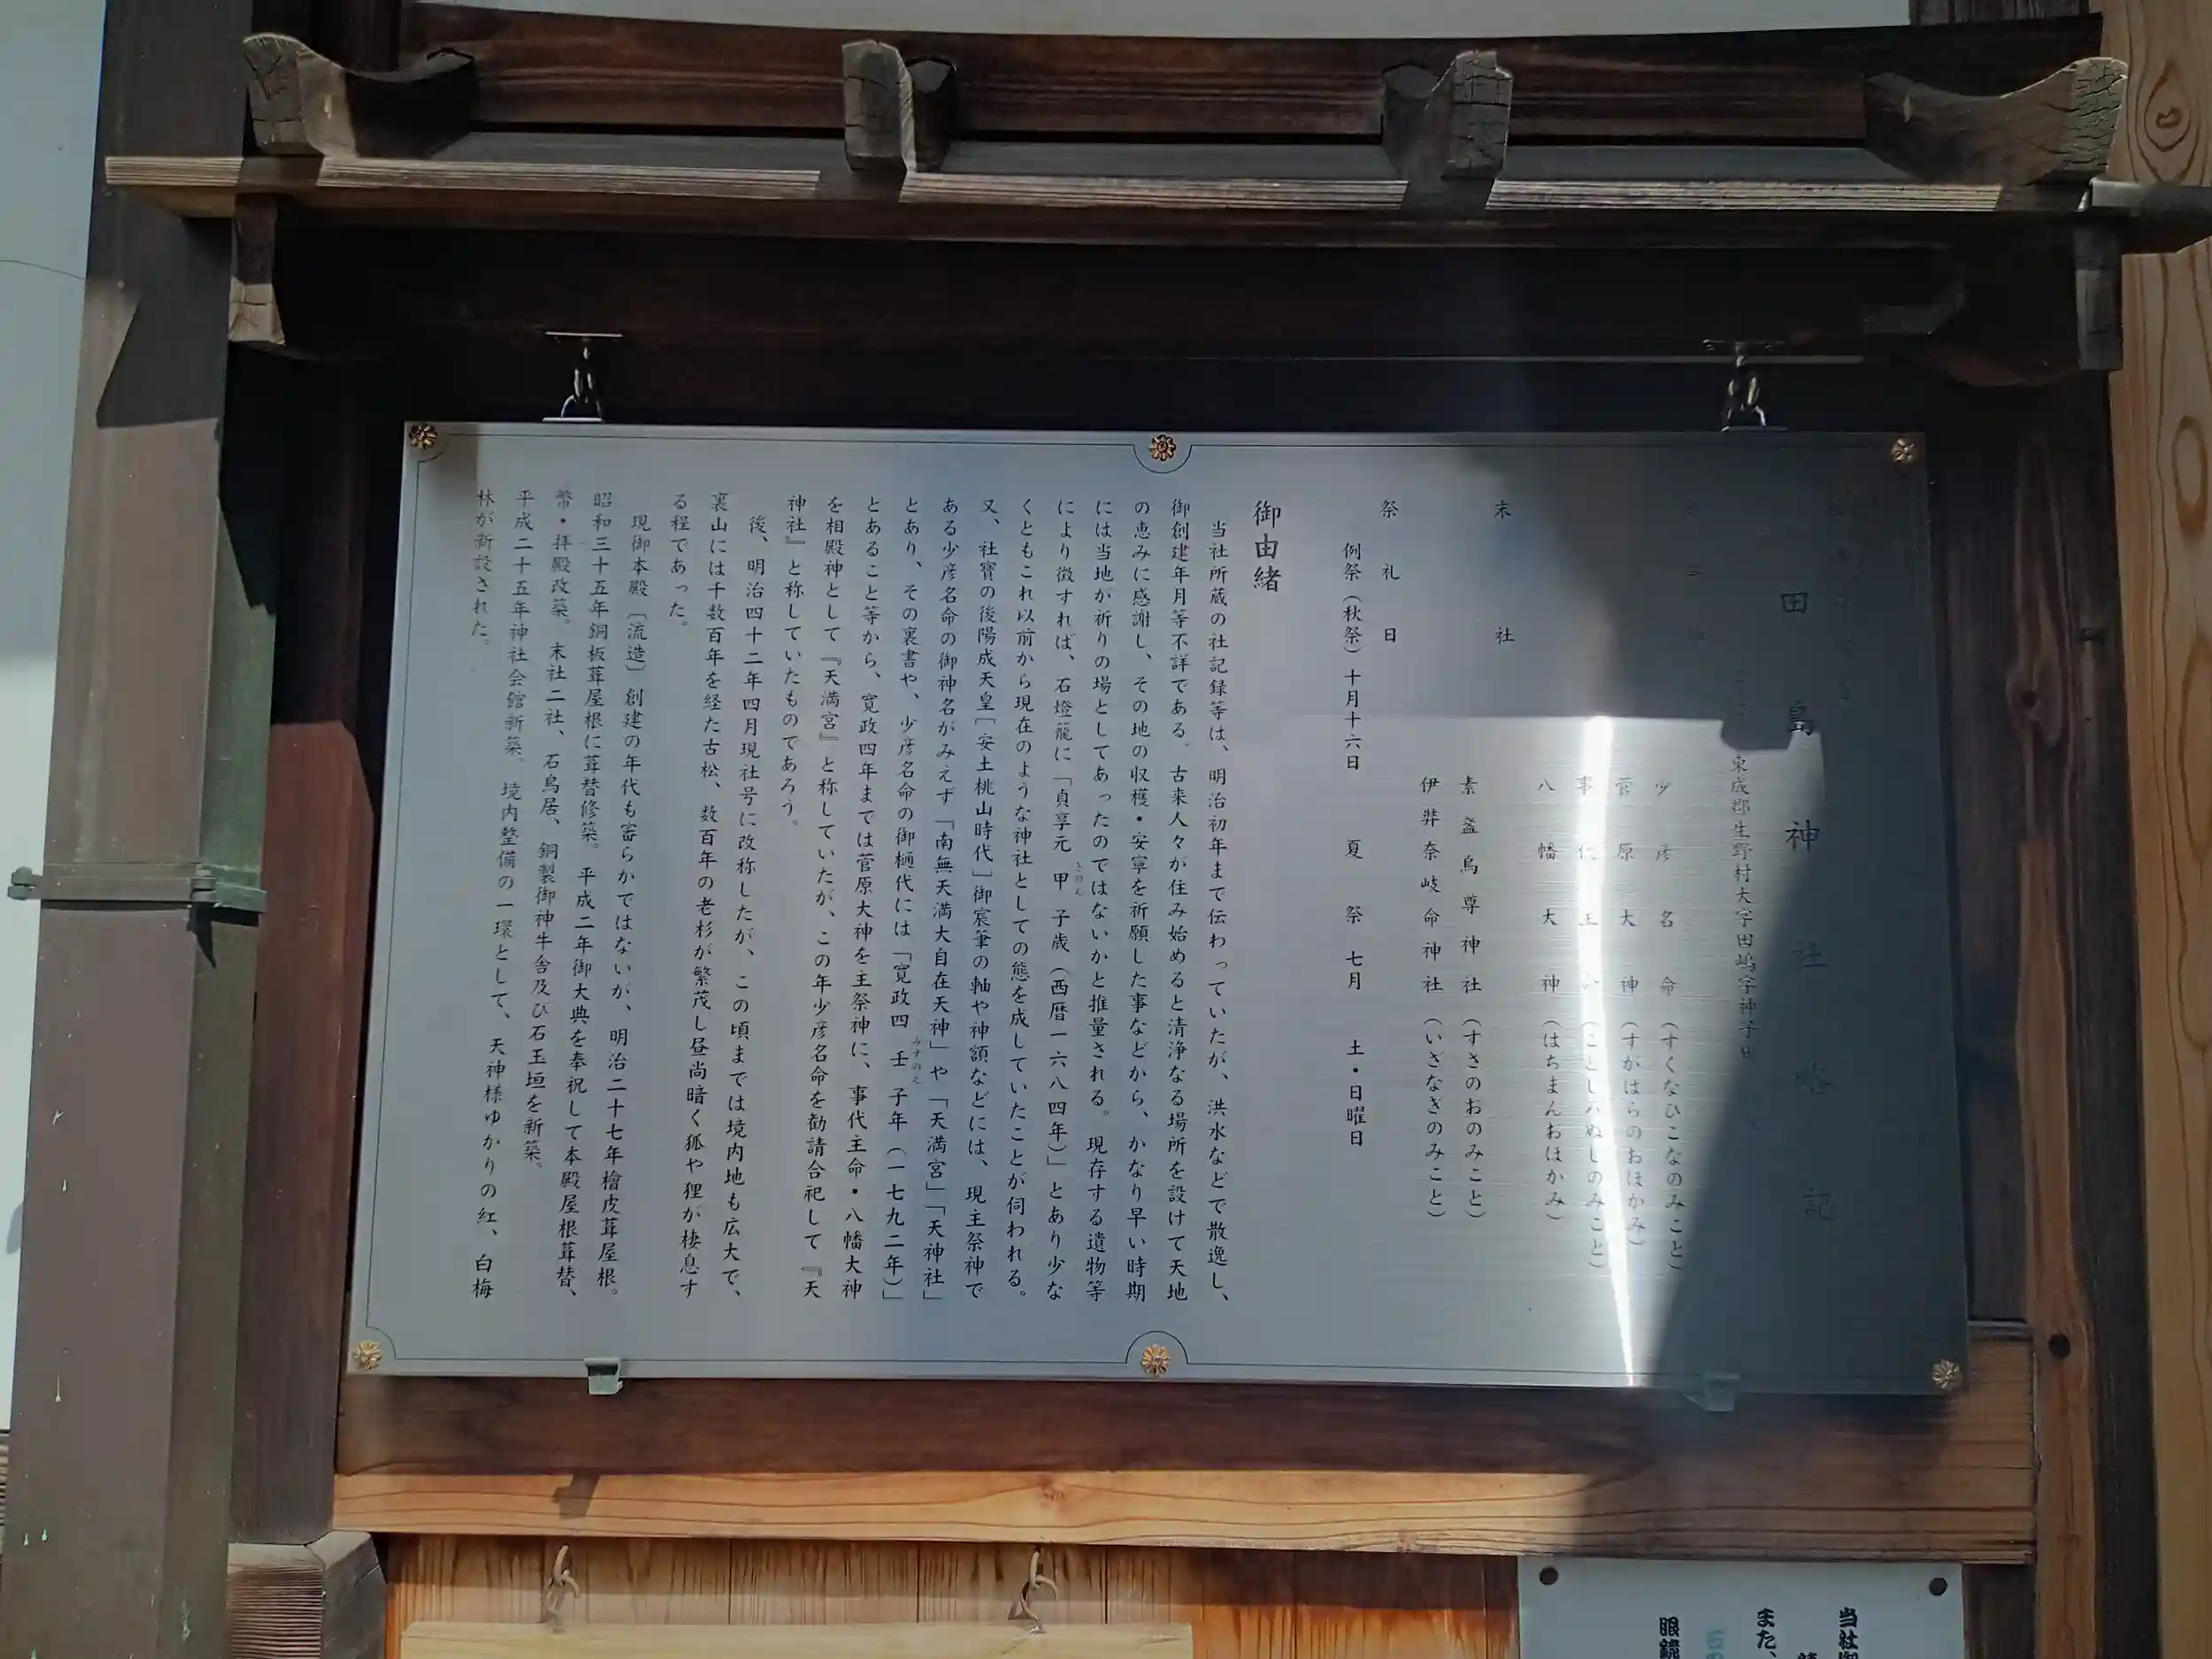 田島神社略記
東成郡生野村大字田嶋字神子田
少彦名命（すくなひこなのみこと）
菅原大神（すがはらのおほかみ）
事代主命（ことしろぬしのみこと）
八幡大神（はちまんおほかみ）
末社
素盞烏尊神社（すさのおのみこと）
伊弉奈岐命神社（いざなぎのみこと）
祭礼日
例祭（秋祭）十月十六日　夏祭　七月　土・日曜日
御由緒
当社所蔵の社記録等は、明治初年まで伝わっていたが、洪水などで散逸し、
御創建年月等不詳である。古来人々が住み始めると清浄なる場所を設けて天地
の恵みに感謝し、その地の収穫・安寧を祈願した事などから、かなり早い時期
には当地が祈りの場としてあったのではないかと推量される。現存する遺物等
により徴すれば、石燈籠に「貞享元甲子歳（西暦一六八四年）」とあり少な
きのえ
くともこれ以前から現在のような神社としての態を成していたことが伺われる。
又、社寳の後陽成天皇［安土桃山時代］御宸筆の軸や神額などには、現主祭神で
ある少彦名命の御神名がみえず「南無天満大自在天神」や「天満宮」「天神社」
とあり、その裏書や、少彦名命の御樋代には「寛政四壬子年（一七九二年）」
みずのえ
とあること等から、寛政四年までは菅原大神を主祭神に、事代主命・八幡大神
を相殿神として『天満宮』と称していたが、この年少彦名命を勧請合祀して『天
神社』と称していたものであろう。
後、明治四十二年四月現社号に改称したが、この頃までは境内地も広大で、
裏山には千数百年を経た古松、数百年の老杉が繁茂し昼尚暗く狐や狸が棲息す
る程であった。
現御本殿［流造］創建の年代も審らかではないが、明治二十七年檜皮葺屋根。
昭和三十五年銅板葺屋根に葺替修築。平成二年御大典を奉祝して本殿屋根葺替、
幣・拝殿改築。末社二社、石鳥居、銅製御神牛舎及び石玉垣を新築。
平成二十五年神社会館新築。境内整備の一環として、天神様ゆかりの紅、白梅
林が新設された。
当社
また、
眼鏡